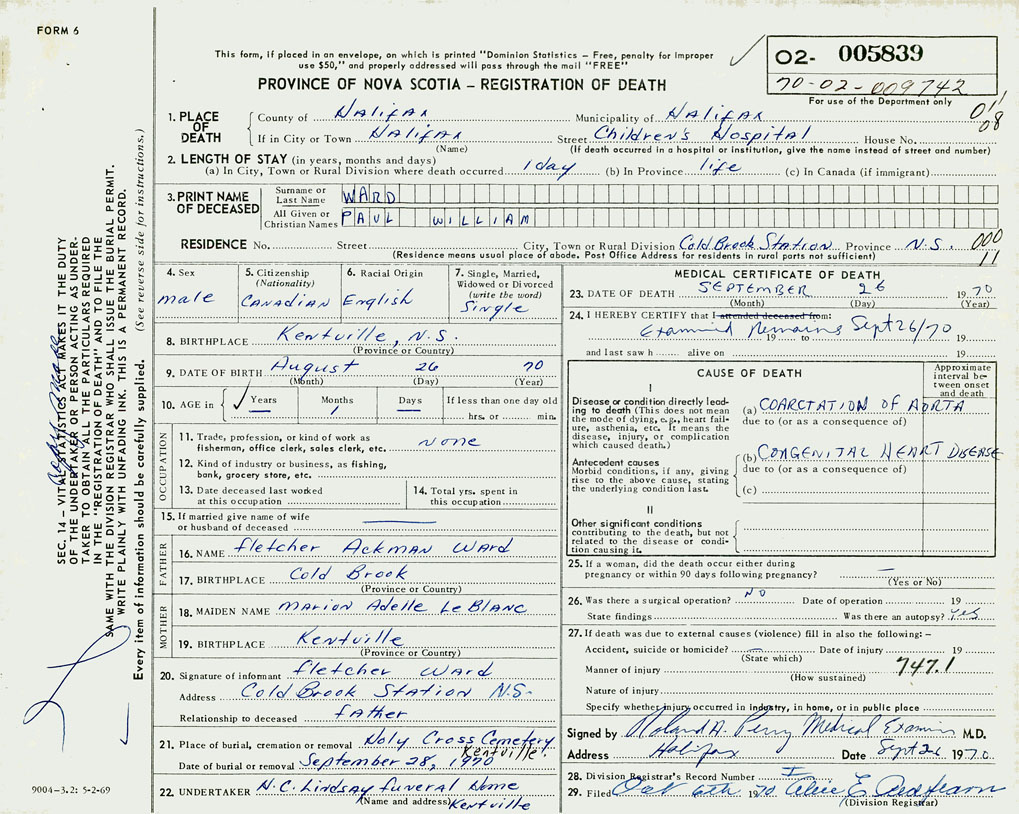 FORM 6
This form, if placed in an envelope, on which is printed "Dominion Statistics – Free, penalty for improper
use $50," and properly addressed will pass through the mail "FREE"
PROVINCE OF NOVA SCOTIA – REGISTRATION OF DEATH
02- 005839
70-02-009742
For use of the Department only
011
08
1. PLACE OF DEATH
County of Halifax Municipality of Halifax
If in City or Town Halifax Street Children's Hospital House No.
(Name) (If death occurred in a hospital or institution, give the name instead of street and number)
2. LENGTH OF STAY (in years, months and days)
(a) In City, Town or Rural Division where death occurred 1 day (b) In Province life (c) In Canada (if immigrant)
3. PRINT NAME OF DECEASED
Surname or Last Name WARD
All Given or Christian Names PAUL WILLIAM
RESIDENCE No. Street City, Town or Rural Division Cold Brook Station Province N.S. 000
(Residence means usual place of abode. Post Office Address for residents in rural ports not sufficient) 11
4. Sex
male
5. Citizenship
(Nationality)
Canadian
6. Racial Origin
English
7. Single, Married,
Widowed or Divorced
(write the word)
Single
8. BIRTHPLACE Kentville, N.S.
(Province or Country)
9. DATE OF BIRTH August 26 70
(Month) (Day) (Year)
10. AGE in Years Months Days If less than one day old
1 hrs. or min.
OCCUPATION
11. Trade, profession, or kind of work as
fisherman, office clerk, sales clerk, etc. none
12. Kind of industry or business, as fishing,
bank, grocery store, etc.
13. Date deceased last worked
at this occupation
14. Total yrs. spent in
this occupation
15. If married give name of wife
or husband of deceased
FATHER
16. NAME Fletcher Ackman Ward
17. BIRTHPLACE Cold Brook
(Province or Country)
MOTHER
18. MAIDEN NAME Marion Adelle LeBlanc
19. BIRTHPLACE Kentville
(Province or Country)
20. Signature of informant Fletcher Ward
Address Cold Brook Station N.S.
Relationship to deceased father
21. Place of burial, cremation or removal Holy Cross Cemetery
Kentville.
Date of burial or removal September 28, 1970
22. UNDERTAKER N.C. Lindsay Funeral Home
(Name and address) Kentville
MEDICAL CERTIFICATE OF DEATH
23. DATE OF DEATH SEPTEMBER 26 1970
(Month) (Day) (Year)
24. I HEREBY CERTIFY that I attended deceased from:
Examined Remains Sept 26/70
19 to 19
and last saw h alive on 19
CAUSE OF DEATH
Approximate
interval be-
tween onset
and death
I
Disease or condition directly lead-
ing to death (This does not mean
the mode of dying, e.g., heart fail-
ure, asthenia, etc. It means the
disease, injury, or complication
which caused death.)
(a) COARCTATION OF AORTA
due to (or as a consequence of)
Antecedent causes
Morbid conditions, if any, giving
rise to the above cause, stating
the underlying condition last.
(b) CONGENITAL HEART DISEASE
due to (or as a consequence of)
(c)
II
Other significant conditions
contributing to the death, but not
related to the disease or condi-
tion causing it.
25. If a woman, did the death occur either during
pregnancy or within 90 days following pregnancy?
(Yes or No)
26. Was there a surgical operation? NO Date of operation 19
State findings Was there an autopsy? Yes
27. If death was due to external causes (violence) fill in also the following: –
Accident, suicide or homicide? Date of injury 19
(State which)
Manner of injury 747.1
(How sustained)
Nature of injury
Specify whether injury occurred in industry, in home, or in public place
Signed by Roland A. Perry Medical Examin M.D.
Address Halifax Date Sept 26 1970
28. Division Registrar's Record Number
29. Filed Oct 6th 1970
(Division Registrar)
SEC. 14 – VITAL STATISTICS ACT MAKES IT THE DUTY
OF THE UNDERTAKER OR PERSON ACTING AS UNDER-
TAKER TO OBTAIN ALL THE PARTICULARS REQUIRED
IN THE "REGISTRATION OF DEATH" AND TO FILE THE
SAME WITH THE DIVISION REGISTRAR WHO SHALL ISSUE THE BURIAL PERMIT.
WRITE PLAINLY WITH UNFADING INK. THIS IS A PERMANENT RECORD.
Every item of information should be carefully supplied. (See reverse side for instructions.)
9004-3.2: 5-2-69